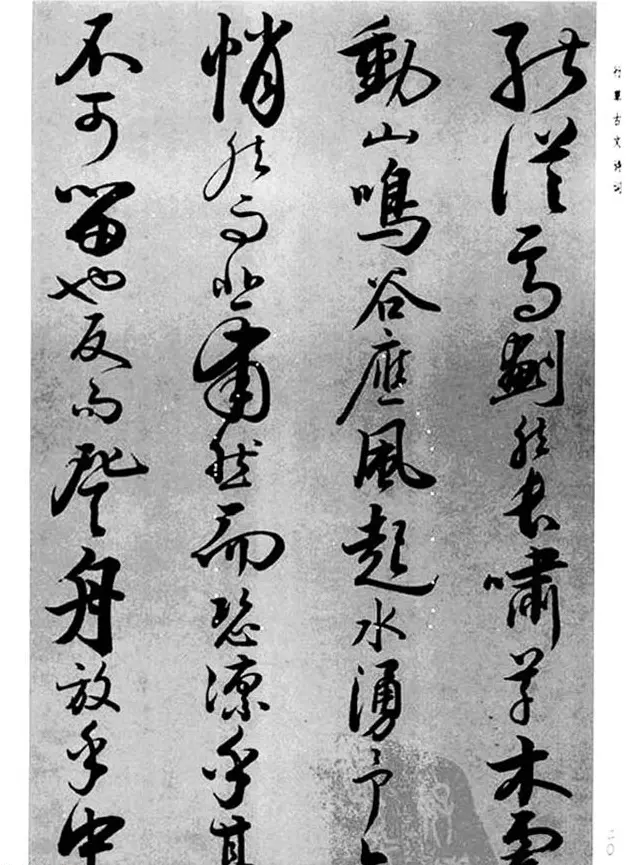 行草古文诗词
能從焉劃然長嘯草木震
動山鳴谷應風起水湧予亦
悄然而悲肅然而恐凜乎其
不可留也反而登舟放乎中